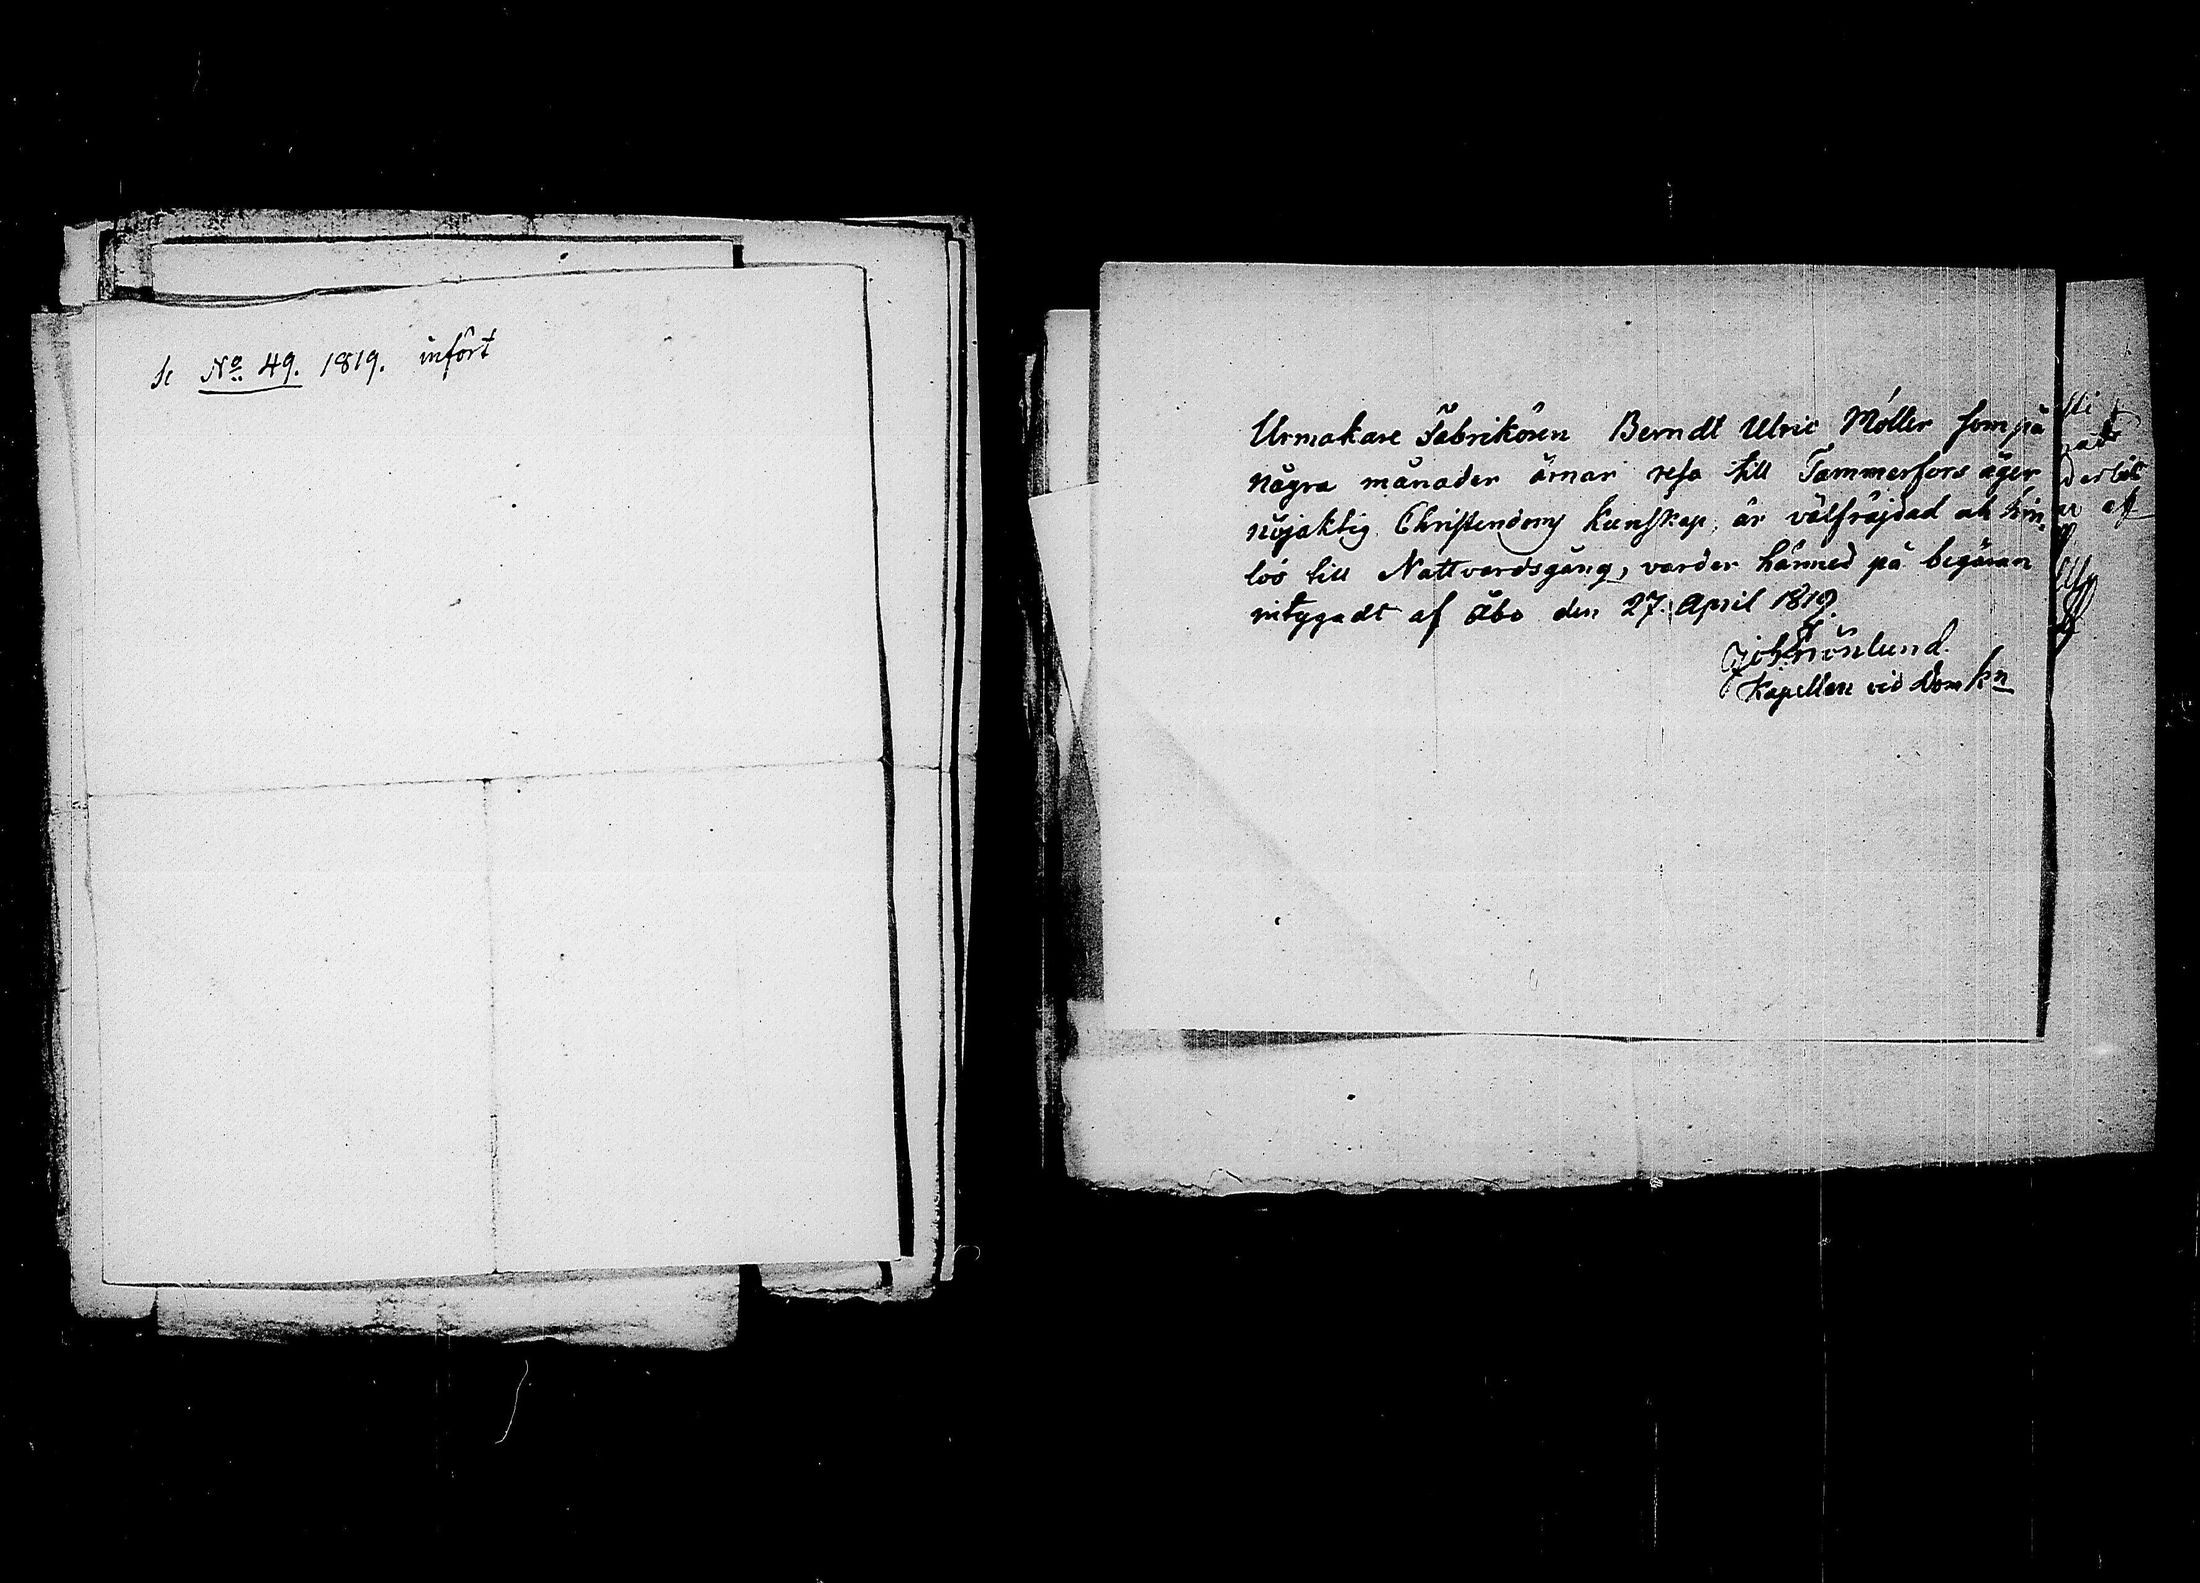 se No 49. 1819. infört
Urmakare Fabrikören Berndt Ulric Möller som på
några månader ärnar resa till Tammerfors äger
nöjaktig Christendoms kunskap, är välfräjdad ah hin-
lös till Nattvardsgång, varder härmed på begäran
intygadt af Åbo den 27. April 1819.
Joh Grönlund.
Kapellan vid Domkn